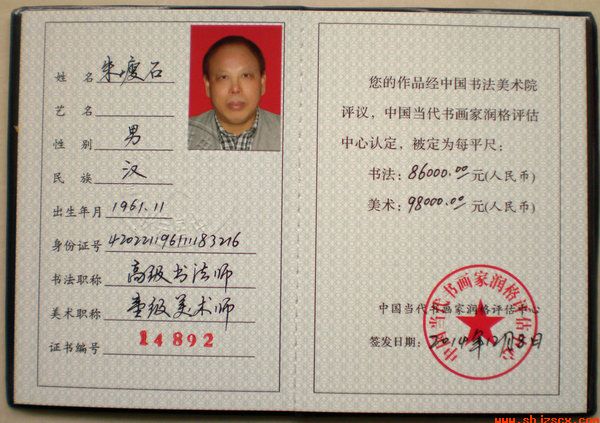 姓名 朱瘦石
艺名
性别 男
民族 汉
出生年月 1961.11
身份证号 420221196111183216
书法职称 高级书法师
美术职称 壹级美术师
证书编号 14892
您的作品经中国书法美术院
评议，中国当代书画家润格评估
中心认定，被定为每平尺：
书法：86000.00元(人民币)
美术：98000.00元(人民币)
中国当代书画家润格评估中心
中国当代书画家润格评估中心
签发日期：2014年12月8日
www.shjzscx.com